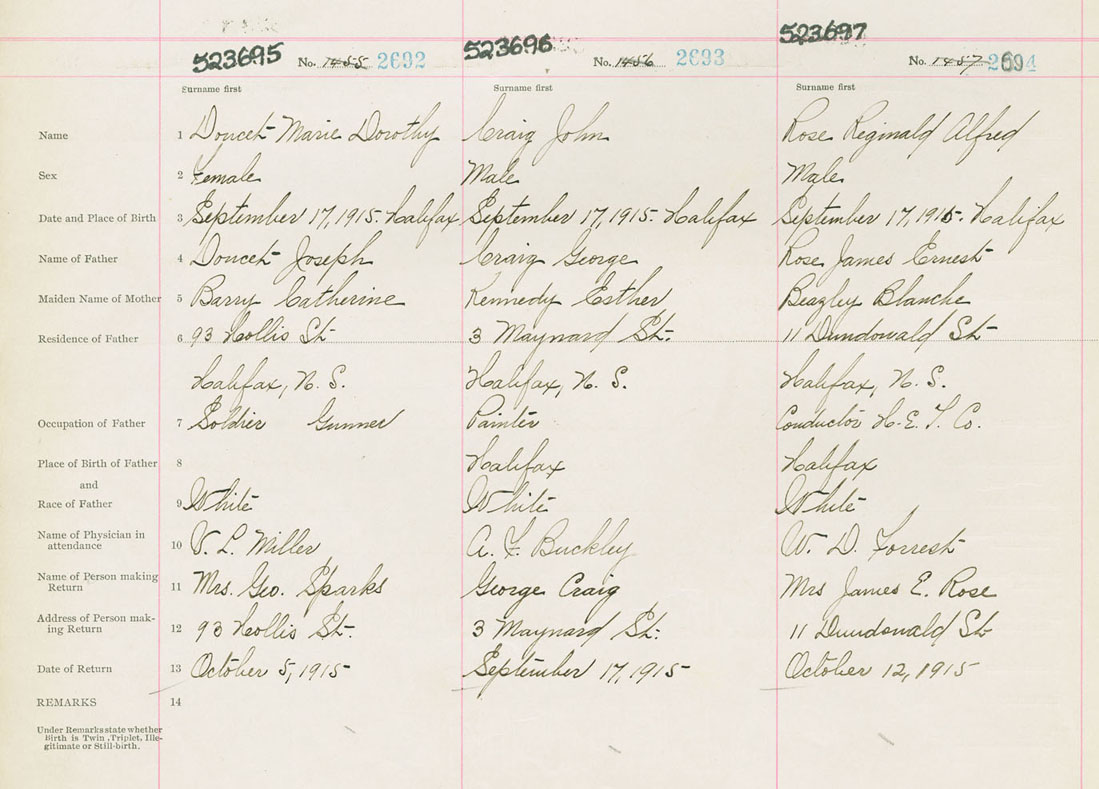 523695 No. 1455 2692 523696 No. 1456 2693 523697 No. 1457 2694
Surname first Surname first Surname first
Name 1 Doucet Marie Dorothy Craig John Rose Reginald Alfred
Sex 2 Female Male Male
Date and Place of Birth 3 September 17, 1915 - Halifax September 17, 1915 - Halifax September 17, 1915 - Halifax
Name of Father 4 Doucet Joseph Craig George Rose James Ernest
Maiden Name of Mother 5 Barry Catherine Kennedy Esther Beazley Blanche
Residence of Father 6 93 Hollis St 3 Maynard St. 11 Dundonald St
Halifax, N. S. Halifax, N. S. Halifax, N. S.
Occupation of Father 7 Soldier Gunner Painter Conductor H. E. T. Co.
Place of Birth of Father 8 Halifax Halifax
and
Race of Father 9 White White White
Name of Physician in
attendance 10 V. L. Miller A. F. Buckley W. D. Forrest
Name of Person making
Return 11 Mrs. Geo. Sparks George Craig Mrs James E. Rose
Address of Person mak-
ing Return 12 93 Hollis St. 3 Maynard St. 11 Dundonald St
Date of Return 13 October 5, 1915 September 17, 1915 October 12, 1915
REMARKS 14
Under Remarks state whether
Birth is Twin, Triplet, Ille-
gitimate or Still-birth.